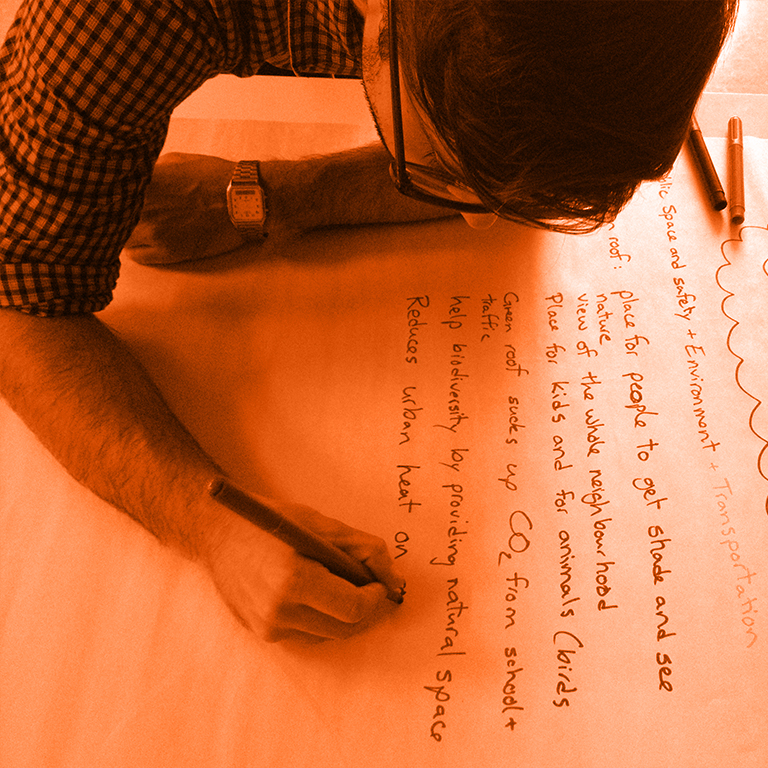 Space and safety + Environment + Transportation
roof: place for people to get shade and see
nature
view of the whole neighbourhood
Place for kids and for animals (birds
Green roof sucks up CO2 from school +
traffic
help biodiversity by providing natural space
Reduces urban heat on